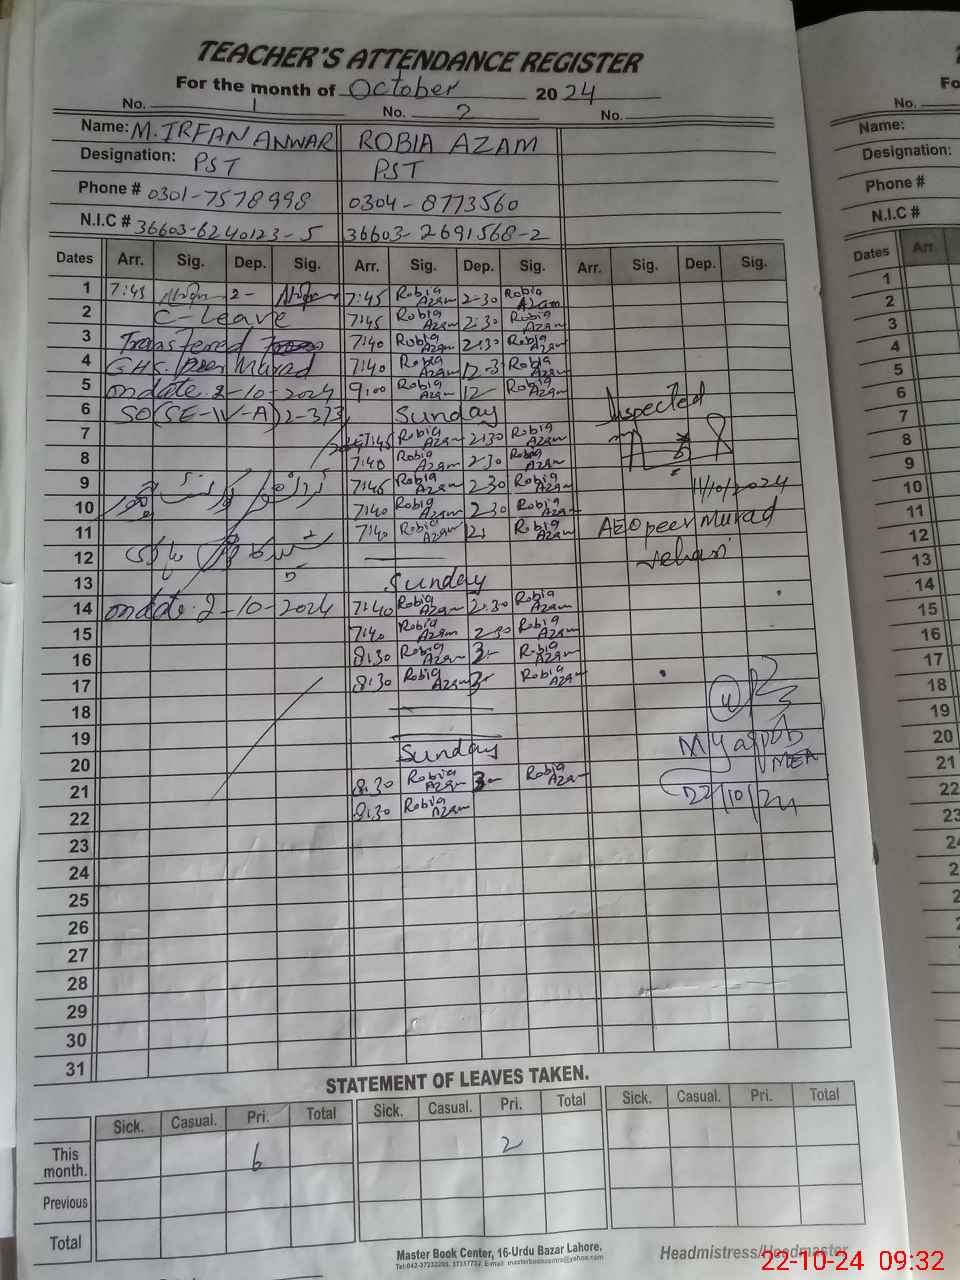 TEACHER'S ATTENDANCE REGISTER
For the month of October 2024
No. 1 No. 2 No.
Name: M. IRFAN ANWAR ROBIA AZAM
Designation: PST PST
Phone # 0301-7578998 0304-8773560
N.I.C # 36603-6240123-5 36603-2691568-2
Dates Arr. Sig. Dep. Sig. Arr. Sig. Dep. Sig. Arr. Sig. Dep. Sig.
1 7:45 2- 7:45 Robia Azam 2-30 Robia Azam
2 C-Leave 7:45 Robia Azam 2:30 Robia Azam
3 Transferred 7:40 Robia Azam 2:30 Robia Azam
4 GHS. Peer Murad 7:40 Robia Azam 12-3 Robia Azam
5 on date 2-10-2024 9:00 Robia Azam 12- Robia Azam
6 SO(SE-IV-A)2-373 Sunday Inspected
7 7:45 Robia Azam 2:30 Robia Azam
8 7:40 Robia Azam 2-30 Robia Azam
9 7:45 Robia Azam 2-30 Robia Azam 11/10/2024
10 7:40 Robia Azam 2-30 Robia Azam
11 7:40 Robia Azam Robia Azam AEO peer Murad
12 vehari
13 Sunday
14 on date 2-10-2024 7:40 Robia Azam 2:30 Robia Azam
15 7:40 Robia Azam 2-30 Robia Azam
16 8:30 Robia Azam 3- Robia Azam
17 8:30 Robia Azam 3- Robia Azam
18
19 M Yaqoob
20 Sunday MEA
21 8:30 Robia Azam 3- Robia Azam 22/10/24
22 8:30 Robia Azam
23
24
25
26
27
28
29
30
31
STATEMENT OF LEAVES TAKEN.
Sick. Casual. Pri. Total Sick. Casual. Pri. Total Sick. Casual. Pri. Total
This month. 6 2
Previous
Total
Master Book Center, 16-Urdu Bazar Lahore.
Headmistress/Headmaster
22-10-24 09:32
Fo
No.
Name:
Designation:
Phone #
N.I.C #
Dates Arr.
1
2
3
4
5
6
7
8
9
10
11
12
13
14
15
16
17
18
19
20
21
22
23